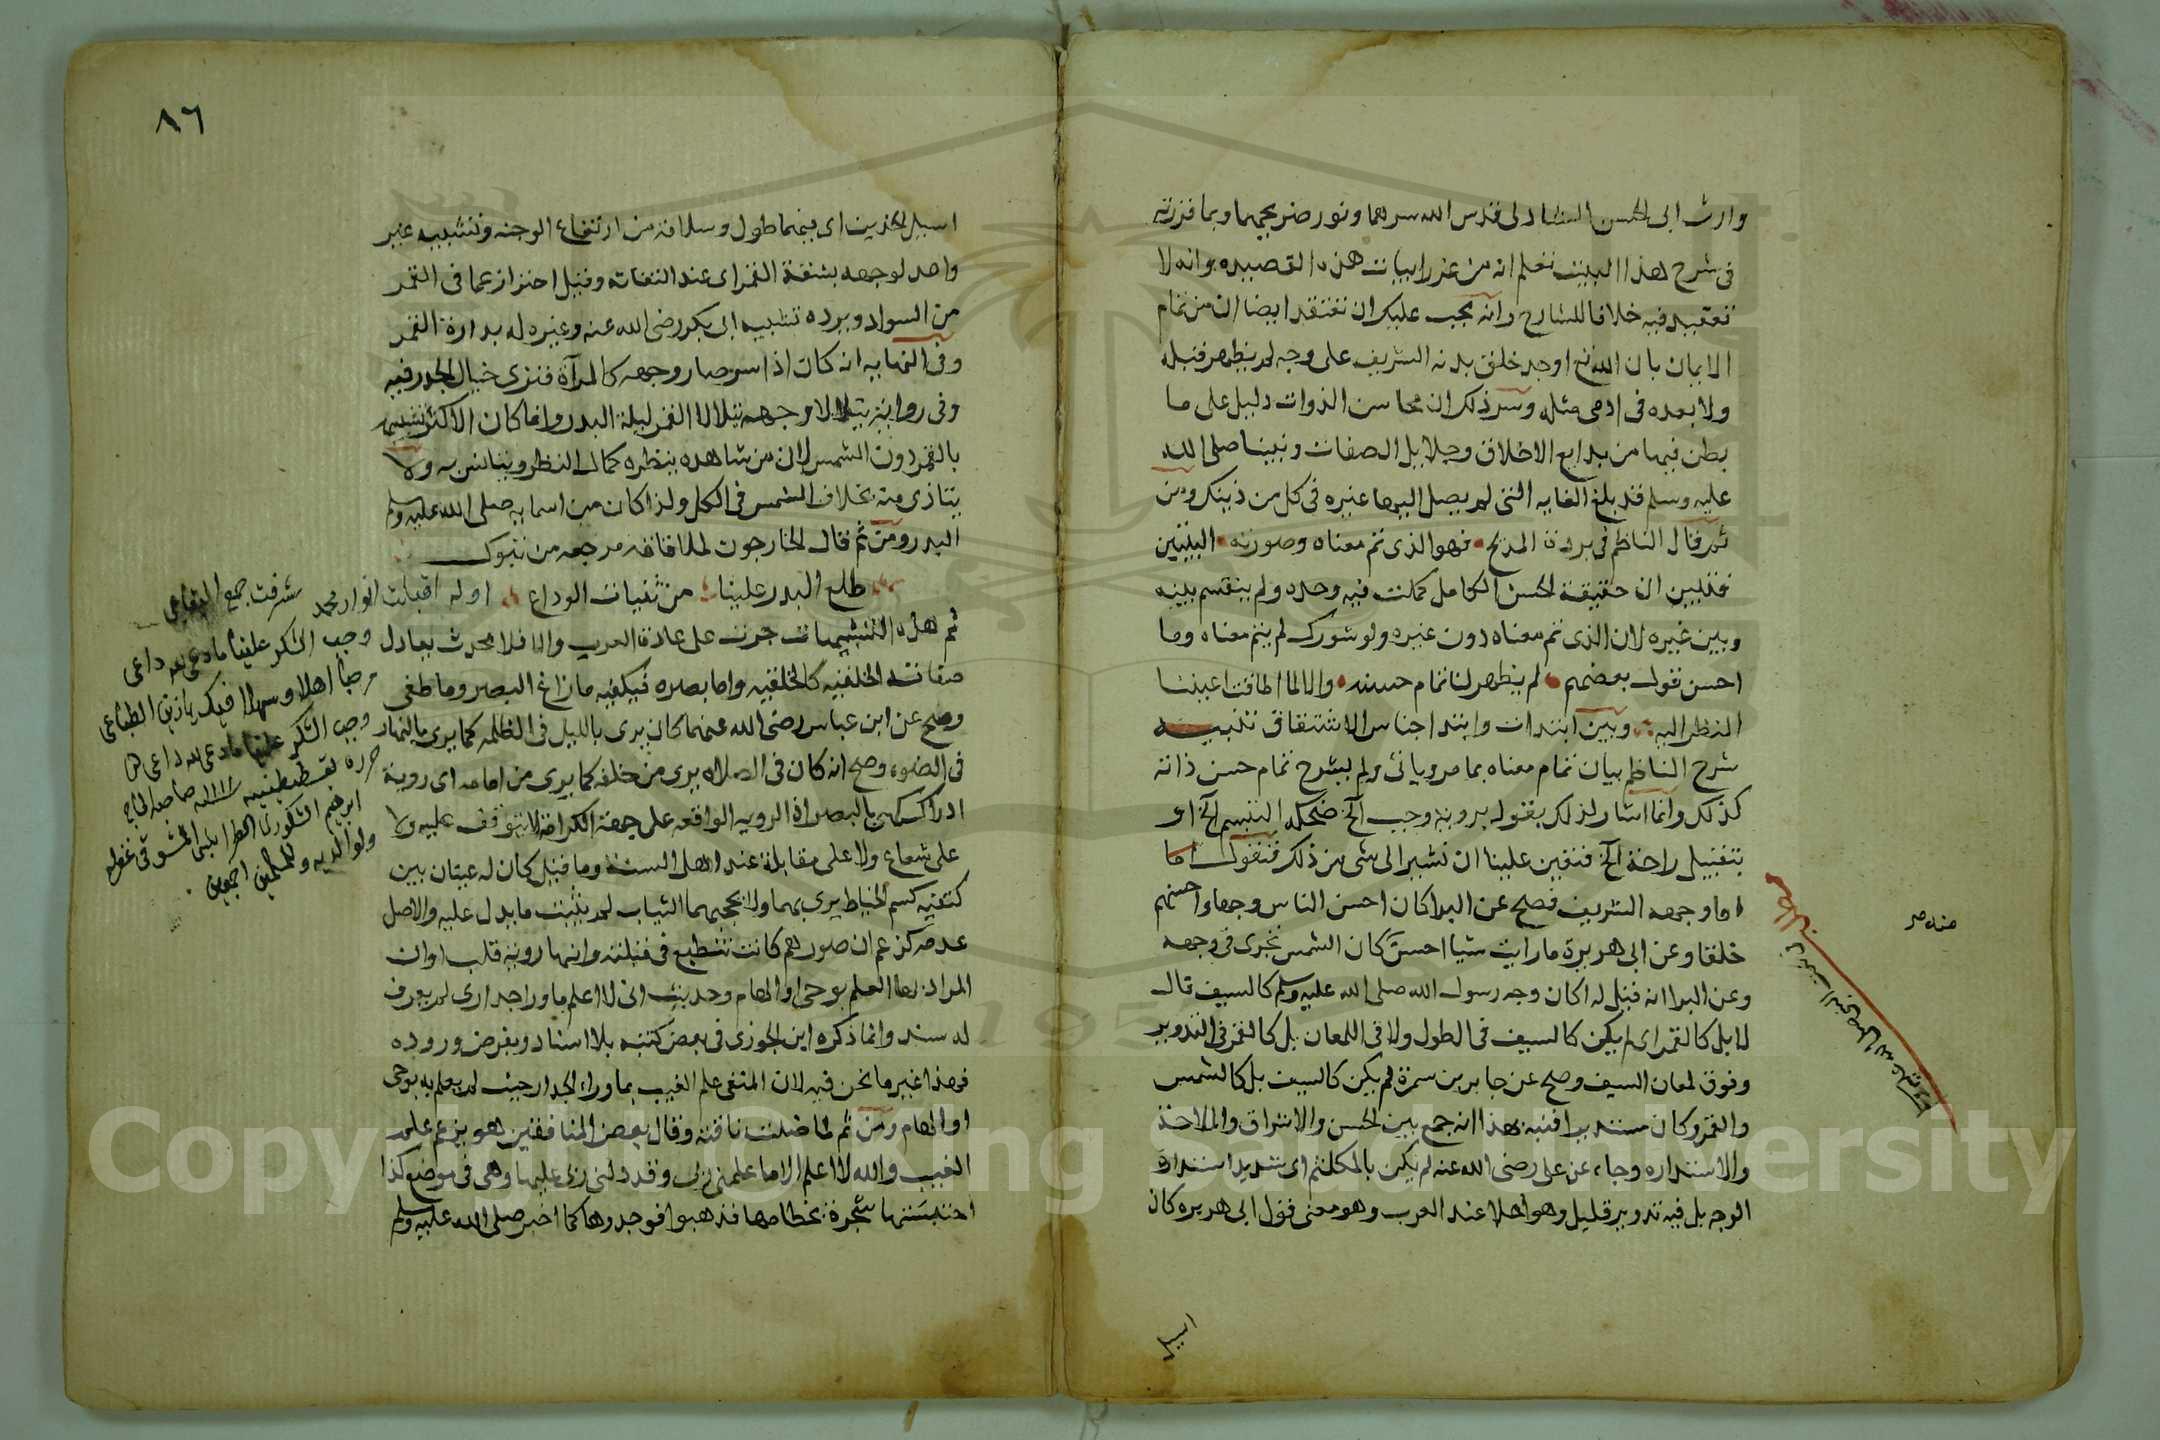 وارث ابى الحسن الشاذلى قدس الله سرهما ونور ضريحهما وبما قررته
فى شرح هذا البيت تعلم انه من غرر ابيات هذه القصيده وانه لا
تعقيد فيه خلافا للشارح وانه يجب عليك ان تعتقد ايضا ان من تمام
الايمان بان الله تع اوجد خلق بدنه الشريف على وجه لم يظهر قبله
ولا بعده فى ادمى مثله وسر ذلك ان محاسن الذوات دليل على ما
بطن فيها من بدايع الاخلاق وجلايل الصفات ونبينا صلى الله
عليه وسلم قد بلغ الغايه التى لم يصل اليها غيره فى كل من ذينك ومن
ثم قال الناظم فى بردة المديح فهو الذى تم معناه وصورته البيتين
فتبين ان حقيقة الحسن الكامل كملت فيه وحده ولم ينقسم بينه
وبين غيره لان الذى تم معناه دون غيره ولو شورك لم يتم معناه وما
احسن قول بعضهم لم يظهر لنا تمام حسنه والا لما اطاقت اعيننا
النظر اليه وبين ابتدات وابتدا جناس الاشتقاق تنبيه
شرح الناظم بيان تمام معناه بما مر وياتى ولم يشرح تمام حسن ذاته
كذلك وانما اشار لذلك بقوله بروية وجب الخ ضحكه التبسم الخ او
بتقبيل راحة الخ فتعين علينا ان نشير الى شى من ذلك فنقول اما
اما وجهه الشريف فصح عن البرا كان احسن الناس وجها واحسنهم
خلقا وعن ابى هريرة ما رايت شيا احسن كان الشمس تجرى فى وجهه
وعن البرا انه قيل له اكان وجه رسول الله صلى الله عليه وسلم كالسيف قال
لا بل كالقمر اى لم يكن كالسيف فى الطول ولا فى اللمعان بل كالقمر فى التدوير
وفوق لمعان السيف وصح عن جابر بن سمرة لم يكن كالسيف بل كالشمس
والقمر وكان مستديرا فنبه بهذا انه جمع بين الحسن والاشراق والملاحة
والاستداره وجاء عن على رضى الله عنه لم يكن بالمكلثم اى شديد استدارة
الوجه بل فيه تدوير قليل وهو احلا عند العرب وهو معنى قول ابى هريره كان
اسيل
٨٦
اسيل الخدين اى فيهما طول وسلامة من ارتفاع الوجنه وتشبيه غير
واحد لوجهه بشقة القمر اى عند التفاته وقيل احتراز عما فى القمر
من السواد ويرده تشبيه ابى بكر رضى الله عنه وغيره له بدارة القمر
وفى النهايه انه كان اذا سر صار وجهه كالمرآة فترى خيال الجدر فيه
وفى رواية يتلالا وجهه تلالا القمر ليلة البدر وانما كان الاكثر تشبيهه
بالقمر دون الشمس لان من شاهده ينظره كمال النظر ويتانس به ولا
يتاذى منه بخلاف الشمس فى الكل ولذا كان من اسمايه صلى الله عليه وسلم
البدر ومن ثم قال الخارجون لملاقاته مرجعه من تبوك
طلع البدر علينا من ثنيات الوداع اوله اقبلت انوار محمد
ثم هذه التشبيهات جرت على عادة العرب والا فلا محدث يعادل
صفاته الخلقيه كالخلقيه واما بصره فيكفيه مازاغ البصر وما طغى
وصح عن ابن عباس رضى الله عنهما كان يرى بالليل فى الظلمه كما يرى بالنهار
فى الضوء وصح انه كان فى الصلاه يرى من خلفه كما يرى من امامه اى روية
ادراك بالبصر اذ الرويه الواقعه على جهة الكرامة لا تتوقف عليه ولا
على شعاع ولا على مقابلة عند اهل السنة وما قيل كان له عينان بين
كتفيه كسم الخياط يرى بهما ولا يحجبهما الثياب لم يثبت ما يدل عليه والاصل
عدمه كزعم ان صورهم كانت تنطبع فى قبلته وانها روية قلب او ان
المراد بها العلم بوحى او الهام وحديث انى لا اعلم ما ورا جدارى لم يعرف
له سند وانما ذكره ابن الجوزى فى بعض كتبه بلا اسناد وبفرض وروده
فهذا غير ما نحن فيه لان المنفى علم الغيب بما وراء الجدار حيث لم يعلم به بوحى
او الهام ومن ثم لما ضلت ناقته وقال بعض المنافقين هو يزعم علم
الغيب والله لا اعلم الا ما علمنى ربى وقد دلنى ربى عليها وهى فى موضع كذا
احتبستها شجرة بخطامها فذهبوا فوجدوها كما اخبر صلى الله عليه وسلم
شرفت جميع البقاعى
وجب الشكر علينا ما دعى لله داعى
مرحبا اهلا وسهلا
وجب الشكر علينا ما دعى لله داعى
Copyright © King Saud University
195